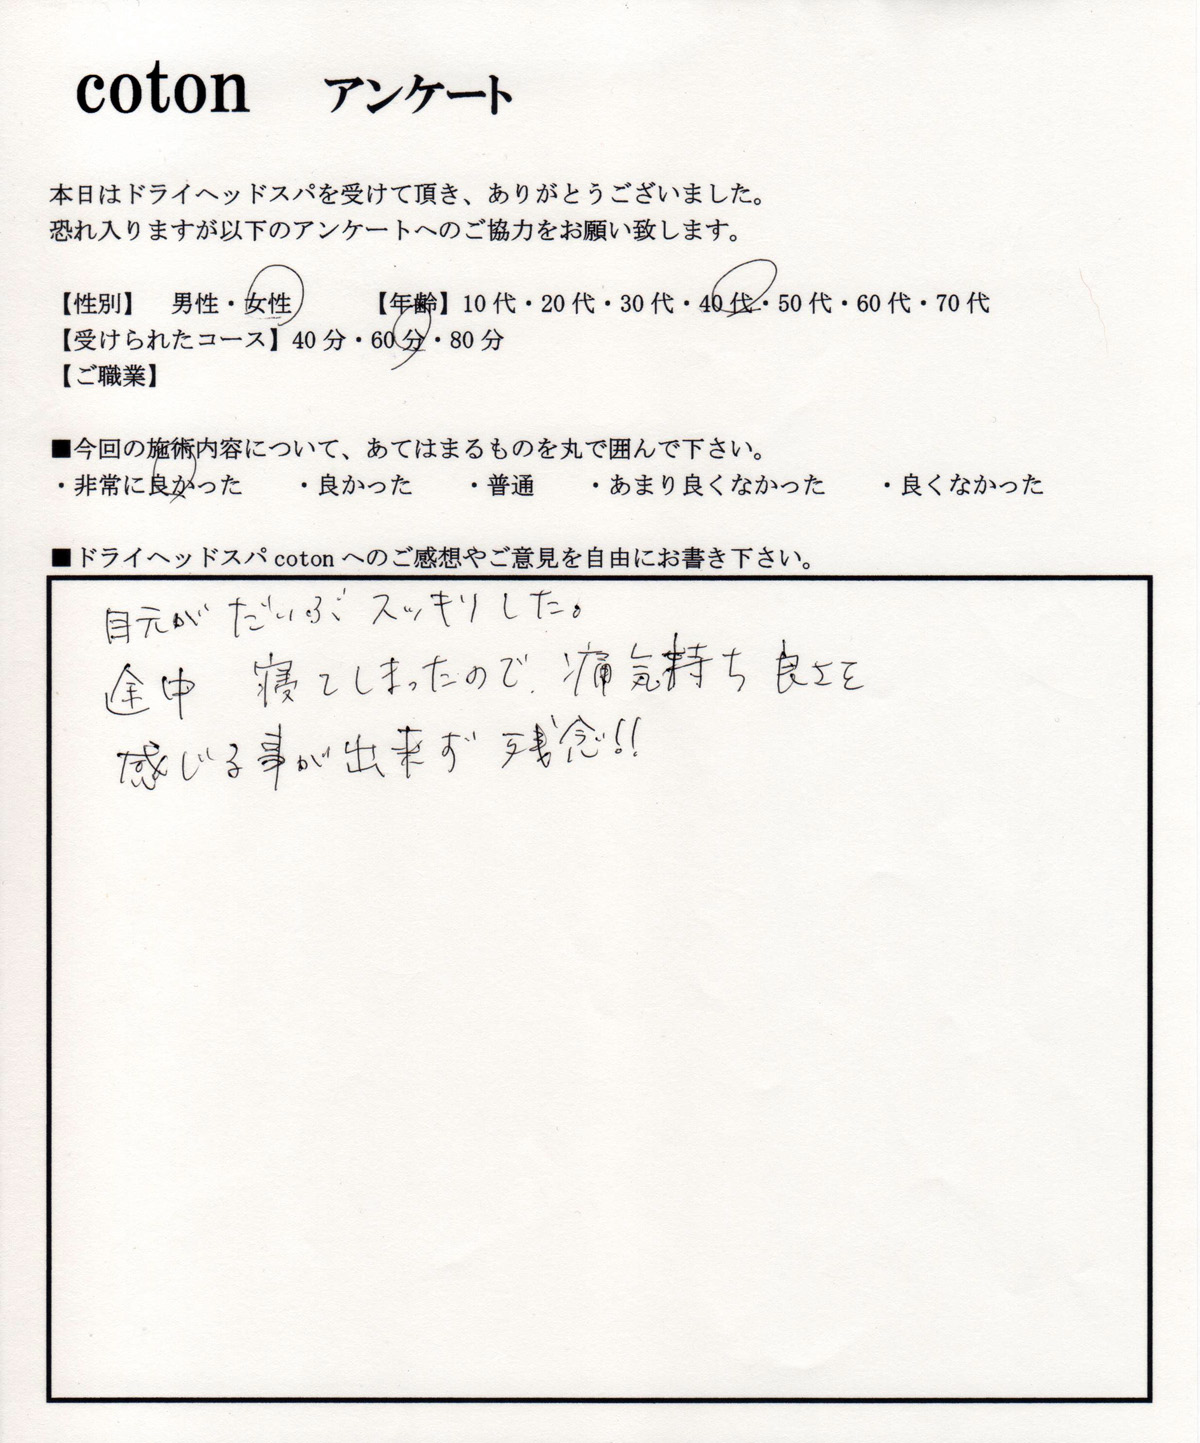 coton アンケート
本日はドライヘッドスパを受けて頂き、ありがとうございました。
恐れ入りますが以下のアンケートへのご協力をお願い致します。
【性別】 男性・女性 【年齢】10代・20代・30代・40代・50代・60代・70代
【受けられたコース】40分・60分・80分
【ご職業】
■今回の施術内容について、あてはまるものを丸で囲んで下さい。
・非常に良かった ・良かった ・普通 ・あまり良くなかった ・良くなかった
■ドライヘッドスパcotonへのご感想やご意見を自由にお書き下さい。
目元がだいぶスッキリした。
途中 寝てしまったので、痛気持ち良さを
感じる事が出来ず残念!!